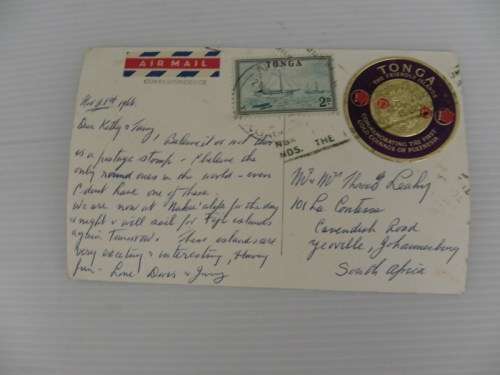 AIR MAIL
CORRESPONDENCE
1966.
Dear Kathy & Tony,
Believe it or not this
is a postage stamp - I believe the
only round ones in the world - even
I dont have one of these.
We are now at for the day
& night & will sail for Fiji islands
again Tomorrow. These islands are
very exciting & interesting, & having
fun - Love Doris &
TONGA
2D
NDS. THE
TONGA
THE FRIENDLY ISLANDS
COMMEMORATING THE FIRST
GOLD COINAGE OF POLYNESIA
Mr & Mrs
101 La Contessa
Cavendish Road
Yeoville, Johannesburg
South Africa